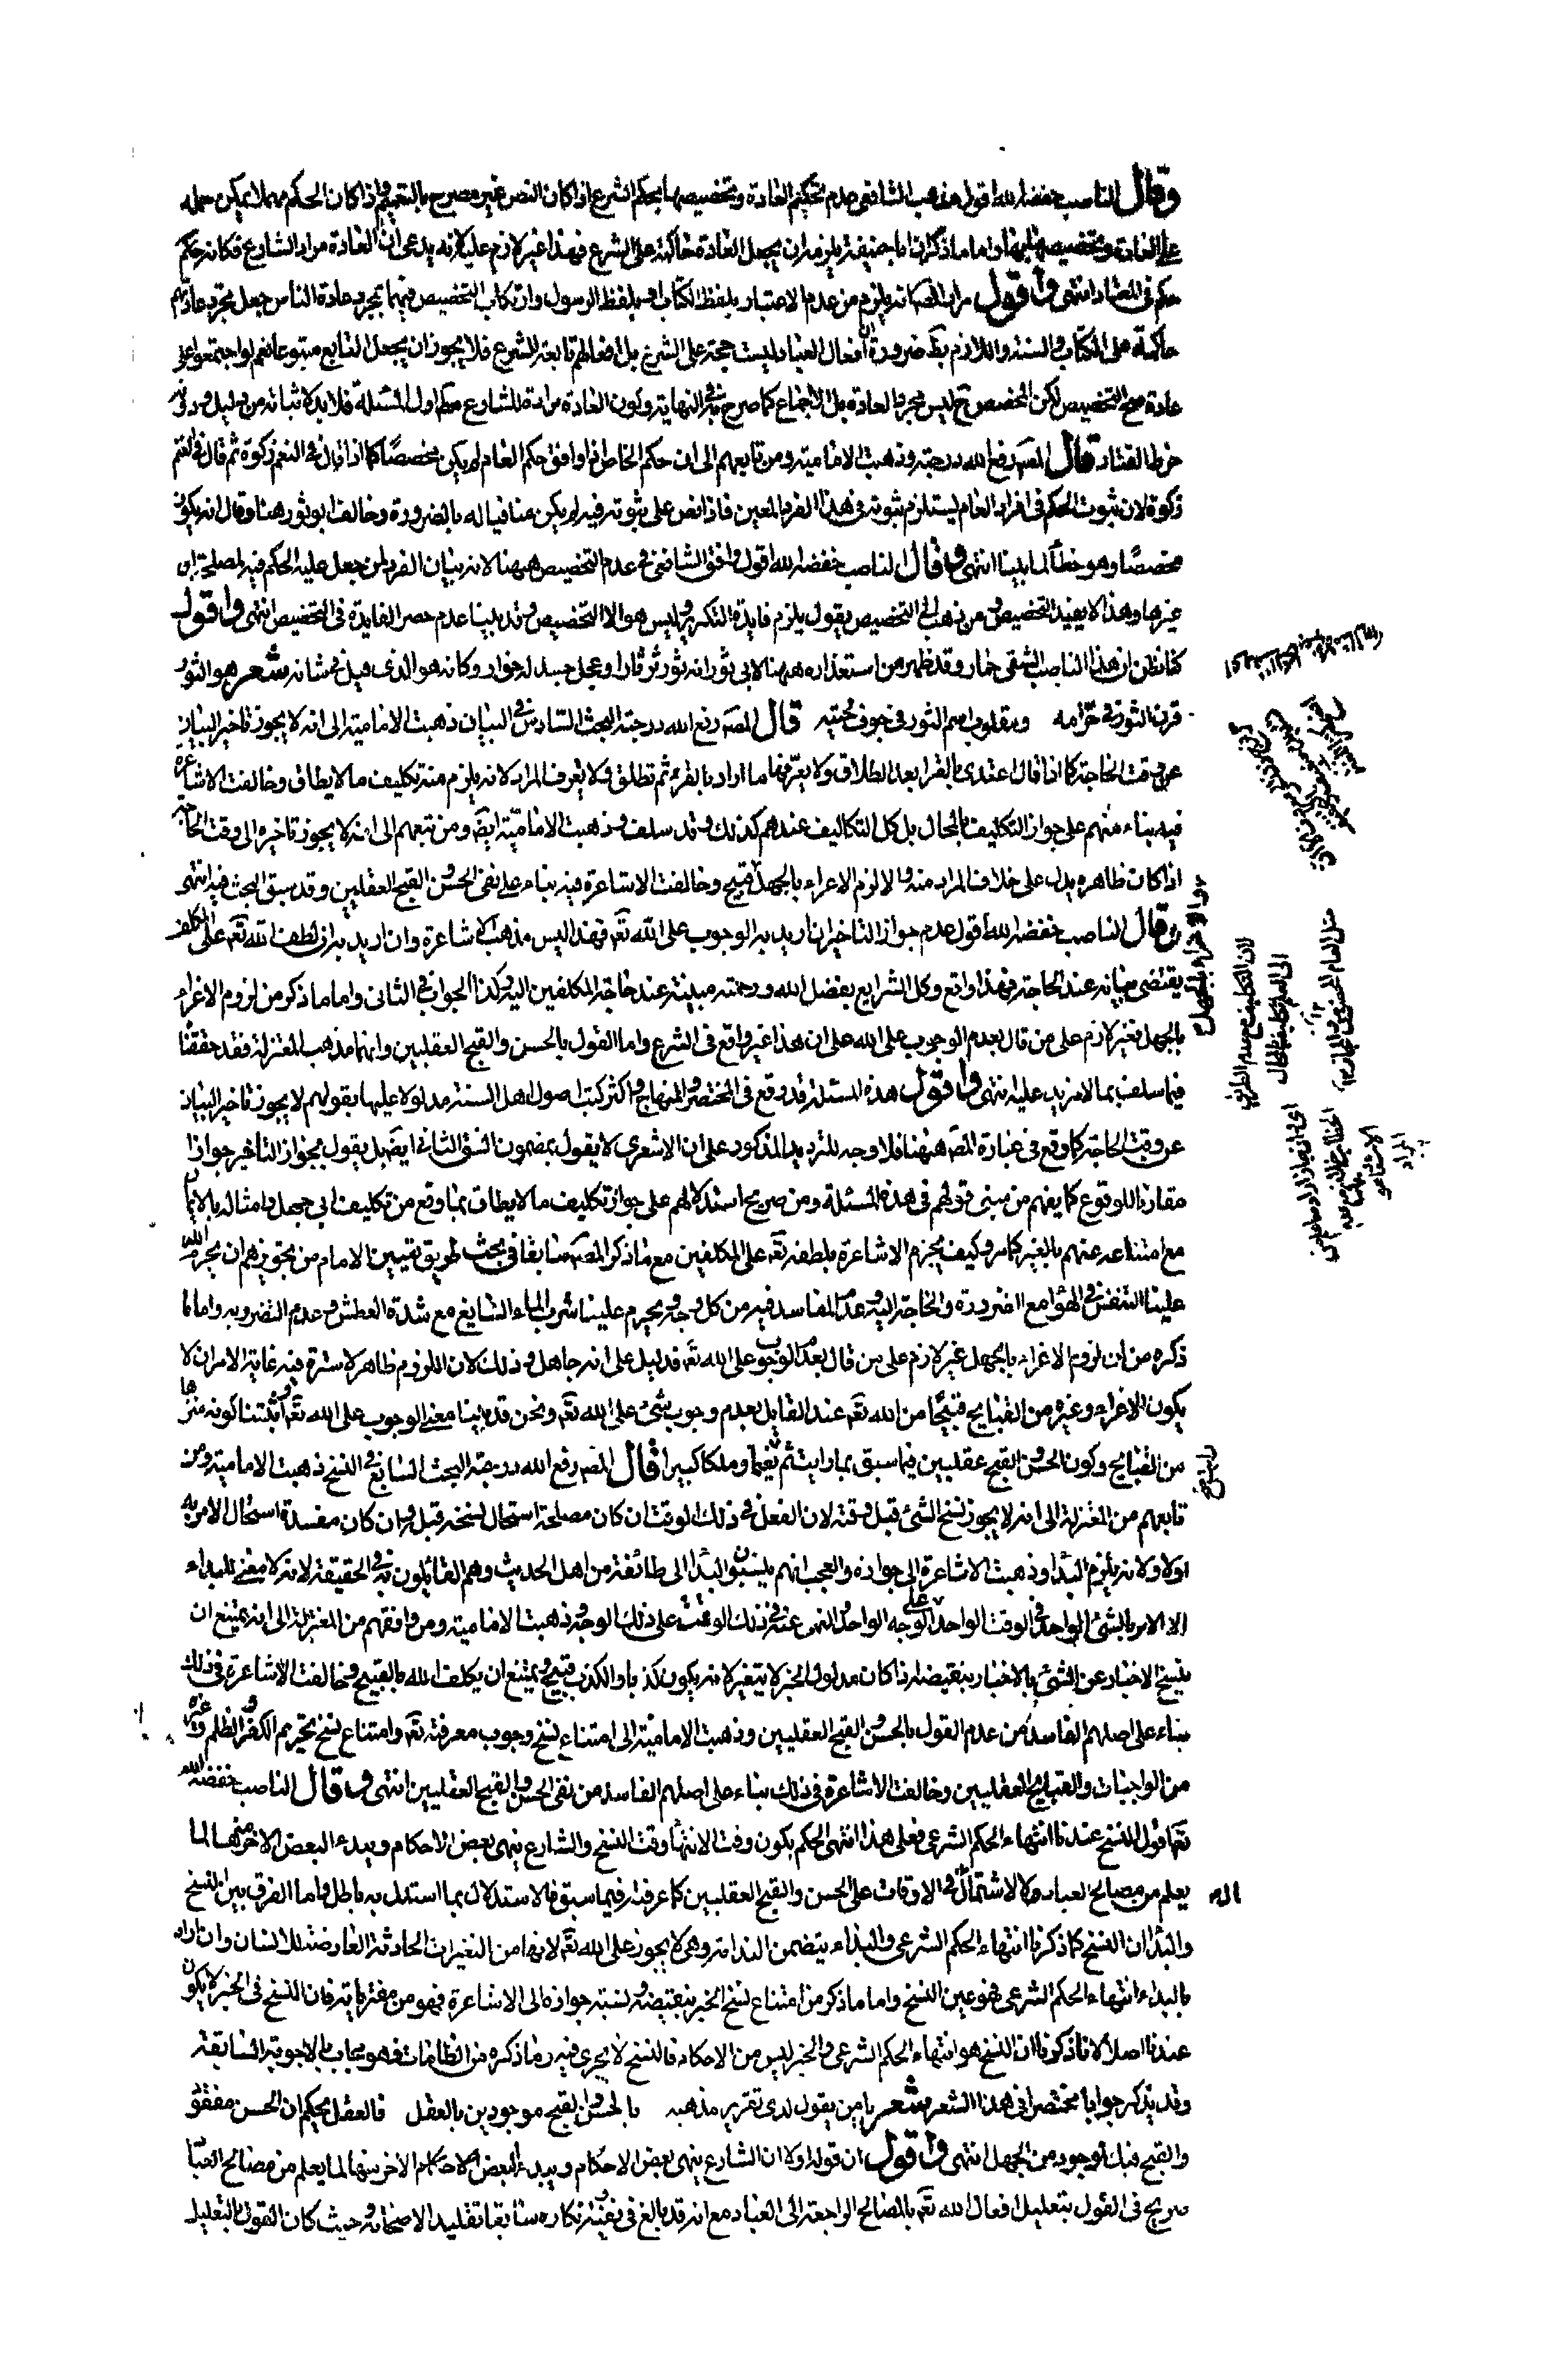 وقال الناصب خفضه الله اقول مذهب الشافعي عدم تحكيم العادة وتخصيصها بحكم الشرع اذا كان النص غير مصرح بالتعميم واذا كان الحكم مهملا يمكن حمله
على العادة وتخصيصها بها واما ما ذكر ان ابا حنيفة يلزمه ان يجعل العادة حاكمة على الشرع فهذا غير لازم عليه لانه يدعي ان العادة مراد الشارع فكانه حكم
حكم في المعتاد انتهى واقول مراد المصه انه يلزم من عدم الاعتبار بلفظ الكتاب وبلفظ الرسول وارتكاب التخصيص فيهما بمجرد عادة الناس جعل مجرد عادتهم
حاكمة على الكتاب والسنة واللازم بط ضرورة ان افعال العباد ليست حجة على الشرع بل افعالهم تابعة للشرع فلا يجوز ان يجعل التابع متبوعا نعم لو اجتمعوا على
عادة صح التخصيص لكن المخصص ح ليس مجرد العادة بل الاجماع كما صرح به في النهاية وكون العادة مرادة للشارع محكم اول المسئلة فلا بد لاثباته من دليل ودونه
خرط القتاد قال المصه رفع الله درجته وذهبت الامامية ومن تابعهم الى ان حكم الخاص اذا وافق حكم العام لم يكن مخصصًا كما اذا قال في النعم زكوة ثم قال في الغنم
زكوة لان ثبوت الحكم في افراد العام يستلزم ثبوته في هذا الفرد المعين فاذا نص على ثبوته فيه لم يكن منافيا له بالضرورة وخالف ابو ثور هنا وقال انه يكون
مخصصًا وهو خطأ لما بينا انتهى وقال الناصب خفضه الله اقول وافق الشافعي في عدم التخصيص ههنا لانه بيان الفرد لمن جعل عليه الحكم فيه لمصلحة او
غيرها وهذا لا يفيد التخصيص ومن ذهب الى التخصيص يقول يلزم فايدة التكرير وليس هو الا التخصيص وقد بينا عدم حصر الفايدة في التخصيص انتهى واقول
كنا نظن ان هذا الناصب الشقي حمار وقد ظهر من استعذاره ههنا لابي ثور انه ثور ثرثار او عجل جسد له خوار وكانه هو الذي قيل في شانه شعر هو الثور
قرن الثور في حرامه ومقلوب اسم الثور في جوف لحيته قال المصه رفع الله درجته البحث السادس في البيان ذهبت الامامية الى انه لا يجوز تاخير البيان
عن وقت الحاجة كما اذا قال اعتدي بالقرء بعد الطلاق ولا يعرفها ما اراد بالقرء ثم تطلق ولا يعرف المراد لانه يلزم منه تكليف ما لا يطاق وخالفت الاشاعرة
فيه بناء منهم على جواز التكليف بالمحال بل كل التكاليف عندهم كذلك وقد سلف وذهبت الامامية ايضا ومن تبعهم الى انه لا يجوز تاخيره الى وقت الحاجة
اذا كان ظاهره يدل على خلاف المراد منه والا لزم الاغراء بالجهل وهو قبيح وخالفت الاشاعرة فيه بناء على نفي الحسن والقبح العقليين وقد سبق البحث فيه انتهى
وقال الناصب خفضه الله اقول عدم جواز التاخير ان اريد به الوجوب على الله تع فهذا ليس مذهب الاشاعرة وان اريد به ان لطف الله تع على المكلف
يقتضي بيانه عند الحاجة فهذا واقع وكل الشرايع بفضل الله ورحمته مبينة عند حاجة المكلفين اليه وكذا الجواب في الثاني واما ما ذكر من لزوم الاغراء
بالجهل فغير لازم على من قال بعدم الوجوب على الله على ان هذا غير واقع في الشرع واما القول بالحسن والقبح العقليين وانهما مذهب المعتزلة فقد حققنا
فيما سلف بما لا مزيد عليه انتهى واقول هذه المسئلة قد وقع في المختصر والمنهاج واكثر كتب اصول اهل السنة مدلولا عليها بقولهم لا يجوز تاخير البيان
عن وقت الحاجة كما وقع في عبارة المصه ههنا فلا وجه للترديد المذكور على ان الاشعري لا يقول بمضمون الشق الثاني ايضا بل يقول بجواز التاخير جوازا
مقارنا للوقوع كما يفهم من مبنى قولهم في هذه المسئلة ومن صريح استدلالهم على جواز تكليف ما لا يطاق بما وقع من تكليف ابي جهل وامثاله بالايمان
مع امتناعه عنهم بالغير كما مر وكيف يجزم الاشاعرة بلطفه تع على المكلفين مع ما ذكر المصه سابقا في بحث طريق تعيين الامام من تجويزهم ان يحرم الله
علينا التنفس في الهوا مع الضرورة والحاجة اليه وعدم المفاسد فيه من كل وجه ويحرم علينا شرب الماء السايغ مع شدة العطش وعدم التضرر به واما ما
ذكره من ان لزوم الاغراء بالجهل غير لازم على من قال بعدم الوجوب على الله تع فدليل على انه جاهل وذلك لان اللزوم ظاهر لا سترة فيه غاية الامر ان لا
يكون الاغراء وغيره من القبايح قبيحًا من الله تع عند القايل بعدم وجوب شئ على الله تع ونحن قد بينا معنى الوجوب على الله تع واثبتنا كونه منزها
من القبايح وكون الحسن والقبح عقليين فيما سبق بما رايت ثم نعيما وملكا كبيرا قال المصه رفع الله درجته البحث السابع في النسخ ذهبت الامامية ومن
تابعهم من المعتزلة الى انه لا يجوز نسخ الشئ قبل وقته لان الفعل في ذلك الوقت ان كان مصلحة استحال نسخه قبله وان كان مفسدة استحال الامر به
اولا ولانه يلزم البدا وذهبت الاشاعرة الى جوازه والعجب انهم ينسبون البدا الى طائفة من اهل الحديث وهم القائلون به في الحقيقة لانه لا معنى للبداء
الا الامر بالشئ الواحد في الوقت الواحد على الوجه الواحد والنهي عنه في ذلك الوقت على ذلك الوجه وذهبت الامامية ومن وافقهم من المعتزلة الى انه يمتنع ان
ينسخ الاخبار عن الشئ بالاخبار بنقيضه اذا كان مدلول الخبر لا يتغير لانه يكون كذبا والكذب قبيح ويمتنع ان يكلف الله بالقبيح وخالفت الاشاعرة في ذلك
بناء على اصلهم الفاسد من عدم القول بالحسن والقبح العقليين وذهبت الامامية الى امتناع نسخ وجوب معرفته تع وامتناع نسخ تحريم الكفر والظلم وغيره
من الواجبات والقبايح العقليين وخالفت الاشاعرة في ذلك بناء على اصلهم الفاسد من نفي الحسن والقبح العقليين انتهى وقال الناصب خفضه الله
تع اقول النسخ عندنا انتهاء الحكم الشرعي فعلى هذا انتهى الحكم يكون وقت الانتهاء وقت النسخ والشارع ينهى بعض الاحكام ويبدء البعض الاخر منها لما
يعلم من مصالح العباد ولا لاشتمال الاوقات على الحسن والقبح العقليين كما عرفته فيما سبق فالاستدلال بما استدل به باطل واما الفرق بين النسخ
والبدا ان النسخ كما ذكرنا انتهاء الحكم الشرعي والبداء يتضمن الندامة وهي لا يجوز على الله تع لانها من التغيرات الحادثة العارضة للانسان وان اراد
بالبداء انتهاء الحكم الشرعي فهو عين النسخ واما ما ذكر من امتناع نسخ الخبر بنقيضه ونسبة جوازه الى الاشاعرة فهو من مفترياته فان النسخ في الخبر لا يكون
عندنا اصلا لانا ذكرنا ان النسخ هو انتهاء الحكم الشرعي والخبر ليس من الاحكام فالنسخ لا يجري فيه وما ذكره من الطامات فهو مجاب بالاجوبة السابقة
وقد يذكر جوابا مختصرا في هذا الشعر شعر يا من يقول لدى تقرير مذهبه بالحسن والقبح موجودين بالعقل فالعقل يحكم ان الحسن مفقود
والقبح فيك لموجود من الجهل انتهى واقول ان قوله اولا ان الشارع ينهى بعض الاحكام ويبدء البعض الاحكام الاخر منها لما يعلم من مصالح العباد
صريح في القول بتعليل افعال الله تع بالمصالح الراجعة الى العباد مع انه قد بالغ في نفيه وانكاره سابقا تقليدا لاصحابه وحيث كان القول بالتعليل